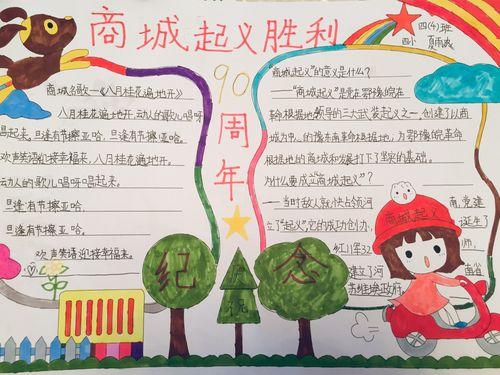 商城起义胜利
90
周
年
四(4)班
四小
商城名歌—《八月桂花遍地开》
八月桂花遍地开,动人的歌儿唱呀
唱起来,旦逢有节擦亚哈,旦逢有节擦亚哈.
欢声笑语迎接幸福来,八月桂花遍地开.
动人的歌儿唱呀唱起来.
旦逢有节擦亚哈.
旦逢有节擦亚哈.
欢声笑语迎接幸福来.
"商城起义"的意义是什么?
——"商城起义"是党在鄂豫皖在
革命根据地领导的三大武装起义之一,创建了以商
城为中心的豫东南革命根据地,为鄂豫皖革命
根据地的商城和发展打下了坚实的基础.
为什么要成立"商城起义"?
——当时敌人就快占领河南,党建
立了"起义",它的成功创办,诞生了
红11军32师,
建立了河南省
苏维埃政府
商城起义
纪
庆
祝
念